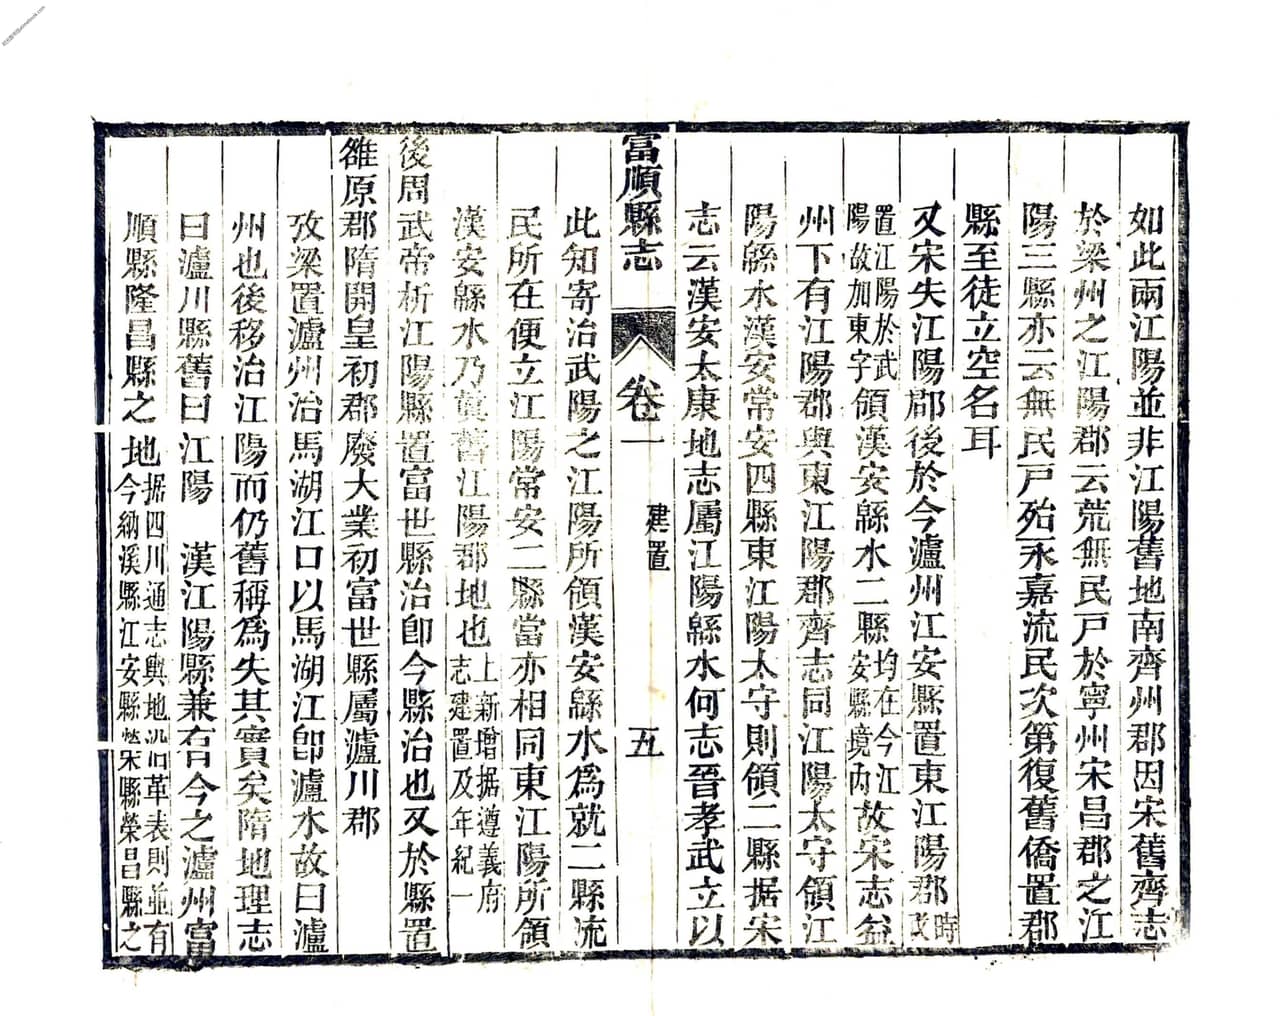 如此兩江陽並非江陽舊地南齊州郡因宋舊齊志
於梁州之江陽郡云荒無民戸於寧州宋昌郡之江
陽三縣亦云無民戸殆永嘉流民次第復舊僑置郡
縣至徒立空名耳
又宋失江陽郡後於今瀘州江安縣置東江陽郡時
置江陽於武
陽故加東字領漢安緜水二縣均在今江
安縣境內故宋志益
州下有江陽郡與東江陽郡齊志同江陽太守領江
陽緜水漢安常安四縣東江陽太守則領二縣据宋
志云漢安太康地志屬江陽緜水何志晉孝武立以
富順縣志
卷一
建置
五
此知寄治武陽之江陽所領漢安緜水為就二縣流
民所在便立江陽常安二縣當亦相同東江陽所領
漢安緜水乃眞舊江陽郡地也上新增据遵義府
志建置及年紀一
後周武帝析江陽縣置富世縣治卽今縣治也又於縣置
雒原郡隋開皇初郡廢大業初富世縣屬瀘川郡
攷梁置瀘州治馬湖江口以馬湖江卽瀘水故曰瀘
州也後移治江陽而仍舊稱為失其實矣隋地理志
曰瀘川縣舊曰江陽 漢江陽縣兼有今之瀘州富
順縣隆昌縣之地据四川通志輿地沿革表則並有
今納溪縣江安縣榮縣榮昌縣之